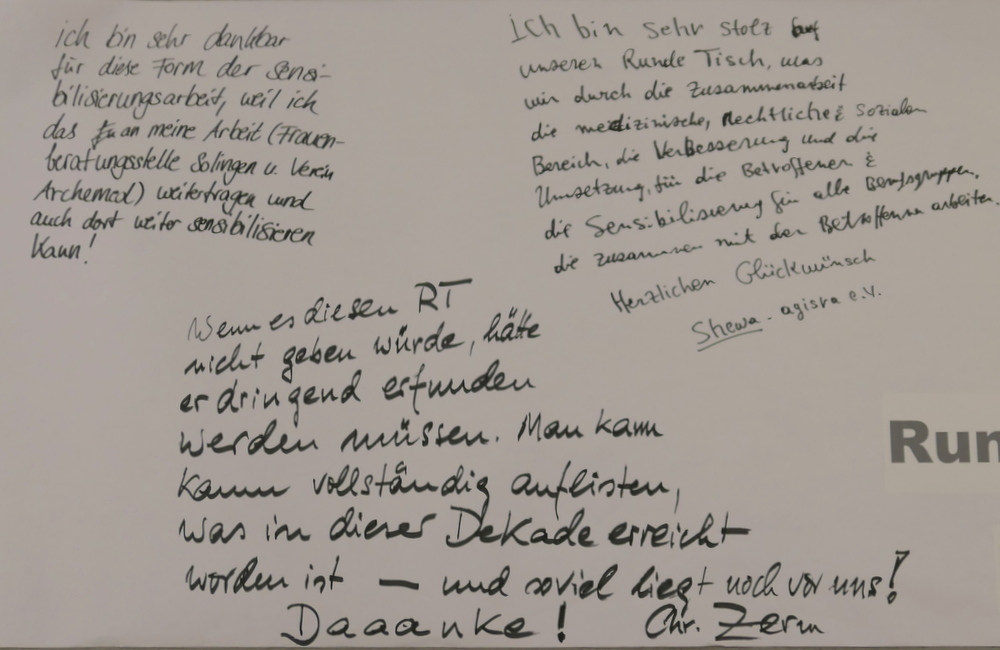 ich bin sehr dankbar
für diese Form der sensi-
bilisierungsarbeit, weil ich
das an meine Arbeit (Frauen-
beratungsstelle Solingen u. Verein
Archemed) weitertragen und
auch dort weiter sensibilisieren
kann!
Ich bin sehr stolz auf
unseren Runde Tisch, was
wir durch die Zusammenarbeit
die medizinische, Rechtliche & sozialen
Bereich, die Verbesserung und die
Umsetzung, für die Betroffenen &
die Sensibilisierung für alle Berufsgruppen,
die zusammen mit den Betroffenen arbeiten.
Herzlichen Glückwünsch
Shewa - agisra e.V.
Wenn es diesen RT
nicht geben würde, hätte
er dringend erfunden
werden müssen. Man kann
kaum vollständig auflisten,
was in dieser Dekade erreicht
worden ist — und soviel liegt noch vor uns!
Daaanke! Chr. Zerm
Run